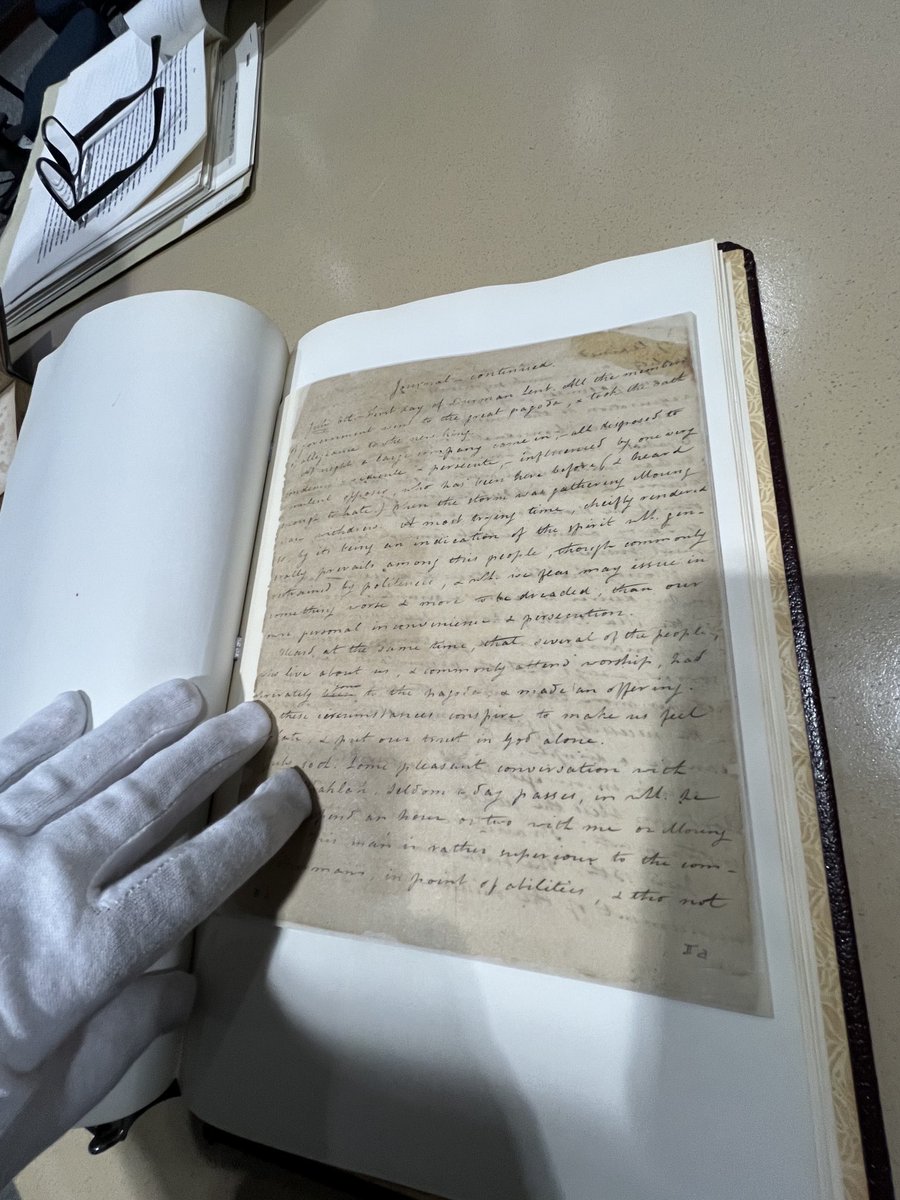 Journal – continued.
July 8th – First day of Burman Lent. All the members
of government went to the great pagoda, & took the oath
of allegiance to the new king.
At night a large company came in, – all disposed to
& persecute, – influenced by one very
violent opposer, who has been here before (& heard
enough to hate.) When the storm was gathering Moung
withdrew. A most trying time, cheifly rendered
so by its being an indication of the spirit wh. gen-
erally prevails among this people, though commonly
restrained by politeness, & wh. we fear may issue in
something worse & more to be dreaded, than our
own personal inconvenience & persecution.
Heard, at the same time, that several of the people,
who live about us, & commonly attend worship, had
privately been gone to the pagoda, & made an offering.
these circumstances conspire to make us feel
& put our trust in God alone.
Some pleasant conversation with
seldom a day passes, in wh. he
an hour or two with me or Moung
man is rather superiour to the com-
in point of abilities, & tho not